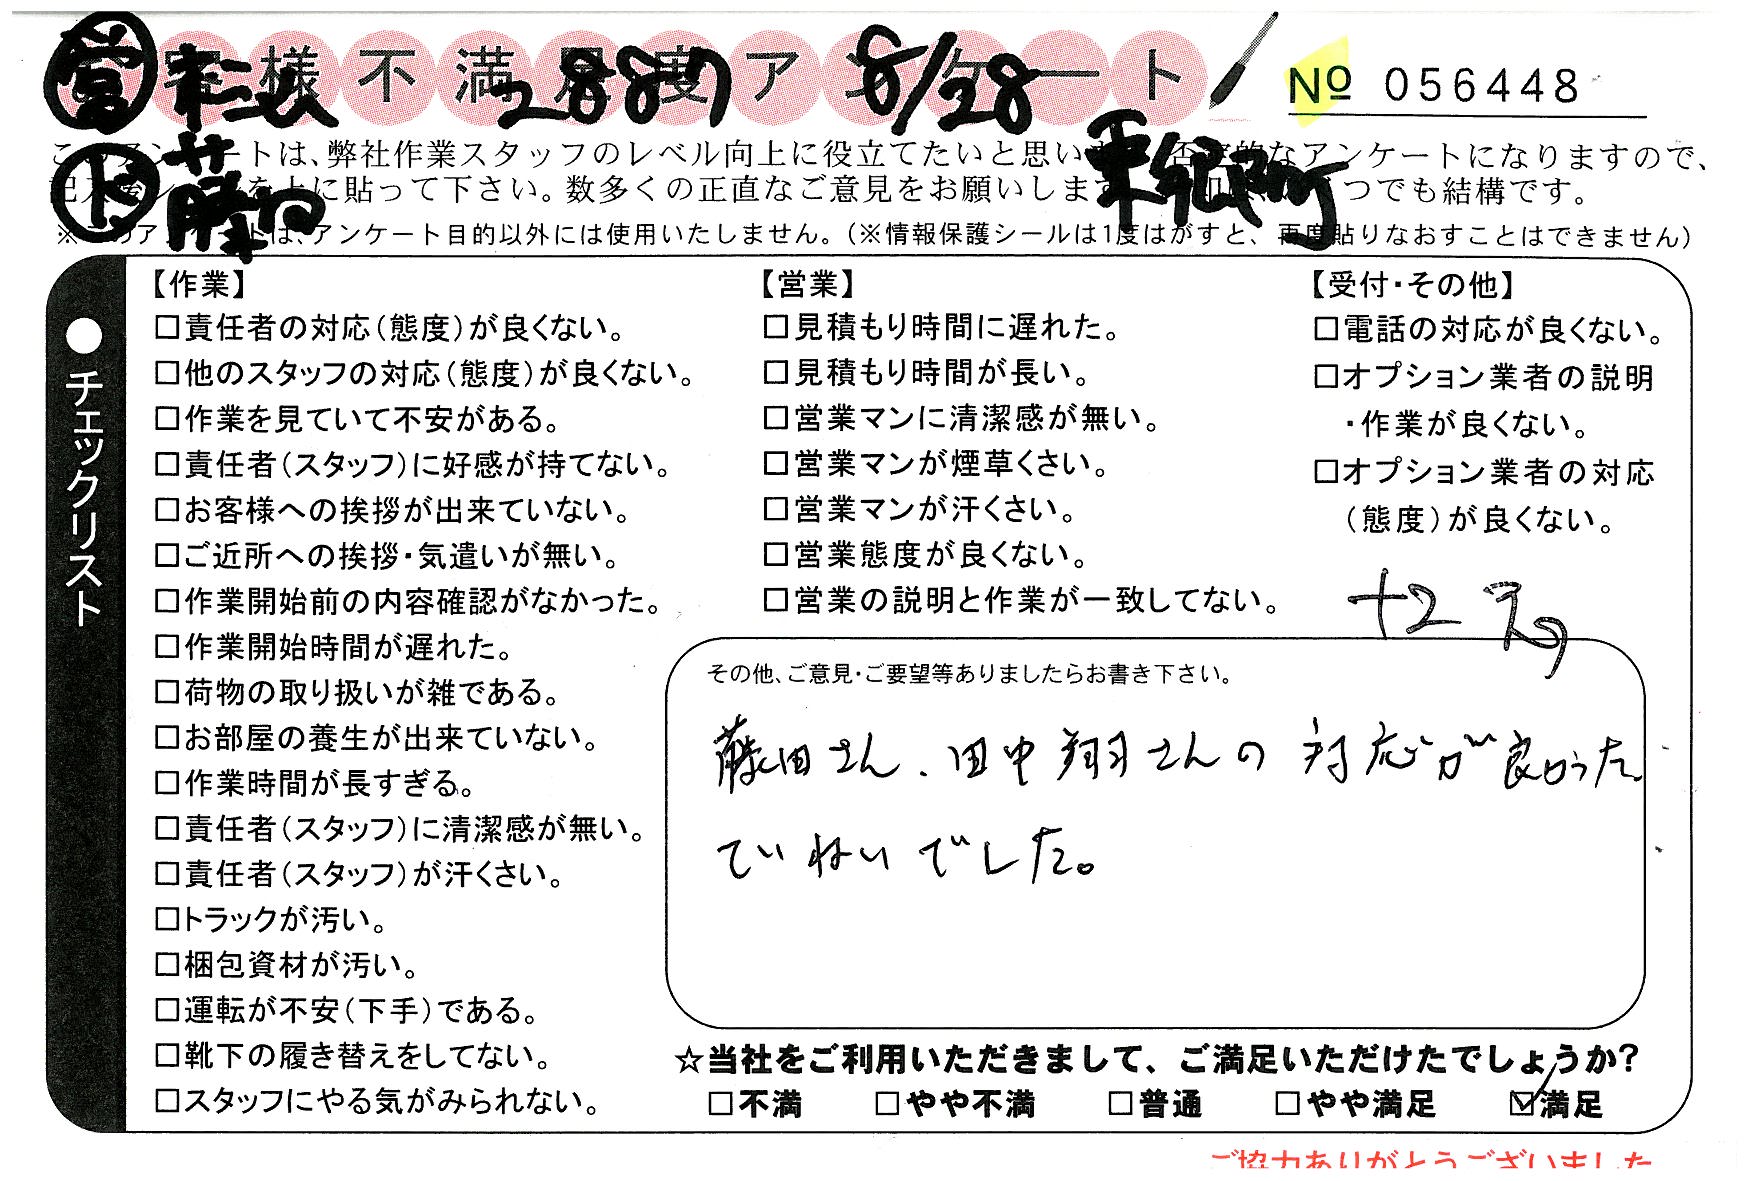 お客様不満足度アンケート
No 056448
営 2887 8/28
このアンケートは、弊社作業スタッフのレベル向上に役立てたいと思います。否定的なアンケートになりますので、
記入後シールを上に貼って下さい。数多くの正直なご意見をお願いします。 つでも結構です。
ド 藤田
※このアンケートは、アンケート目的以外には使用いたしません。(※情報保護シールは1度はがすと、再度貼りなおすことはできません)
●チェックリスト
【作業】
□責任者の対応(態度)が良くない。
□他のスタッフの対応(態度)が良くない。
□作業を見ていて不安がある。
□責任者(スタッフ)に好感が持てない。
□お客様への挨拶が出来ていない。
□ご近所への挨拶・気遣いが無い。
□作業開始前の内容確認がなかった。
□作業開始時間が遅れた。
□荷物の取り扱いが雑である。
□お部屋の養生が出来ていない。
□作業時間が長すぎる。
□責任者(スタッフ)に清潔感が無い。
□責任者(スタッフ)が汗くさい。
□トラックが汚い。
□梱包資材が汚い。
□運転が不安(下手)である。
□靴下の履き替えをしてない。
□スタッフにやる気がみられない。
【営業】
□見積もり時間に遅れた。
□見積もり時間が長い。
□営業マンに清潔感が無い。
□営業マンが煙草くさい。
□営業マンが汗くさい。
□営業態度が良くない。
□営業の説明と作業が一致してない。
【受付・その他】
□電話の対応が良くない。
□オプション業者の説明
・作業が良くない。
□オプション業者の対応
(態度)が良くない。
その他、ご意見・ご要望等ありましたらお書き下さい。
藤田さん、田中翔さんの対応が良かった。
ていねいでした。
☆当社をご利用いただきまして、ご満足いただけたでしょうか?
□不満 □やや不満 □普通 □やや満足 ☑満足
ご協力ありがとうございました